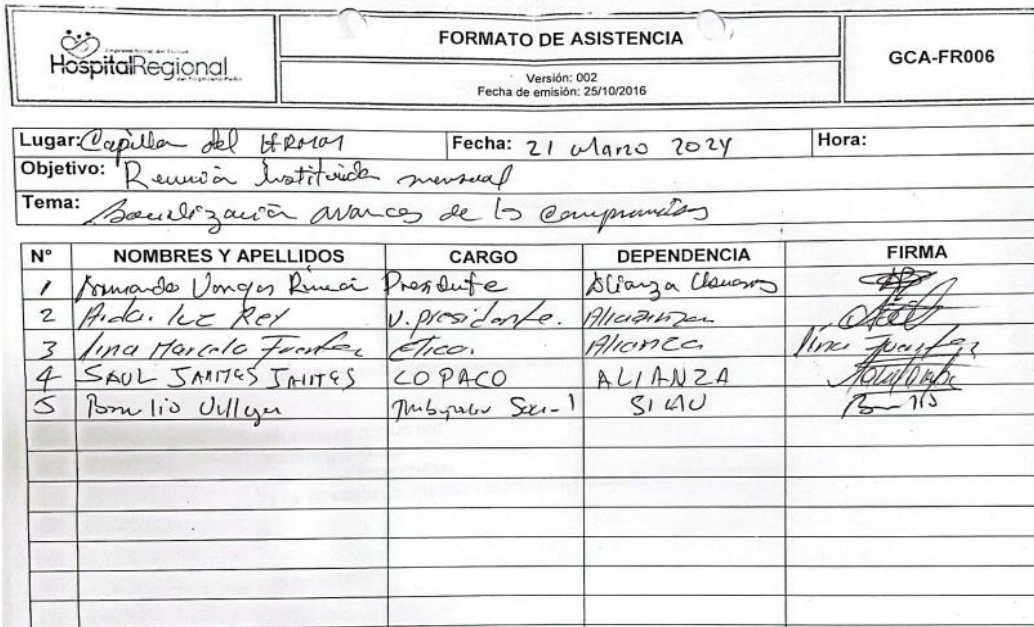 HospitalRegional
FORMATO DE ASISTENCIA
GCA-FR006
Versión: 002
Fecha de emisión: 25/10/2016
Lugar: Capilla del Fecha: 21 Marzo 2024 Hora:
Objetivo: Reunión mensual
Tema: Socialización avances de los compromisos
N° NOMBRES Y APELLIDOS CARGO DEPENDENCIA FIRMA
1 Armando Vargas Presidente Alianza Usuarios
2 Aida. luz Rey V. presidente. Alianza
3 lina Marcela Fuentes Etica. Alianza lina Fuentes
4 SAUL JAIMES JAIMES COPACO ALIANZA
5 Villegas SIAU